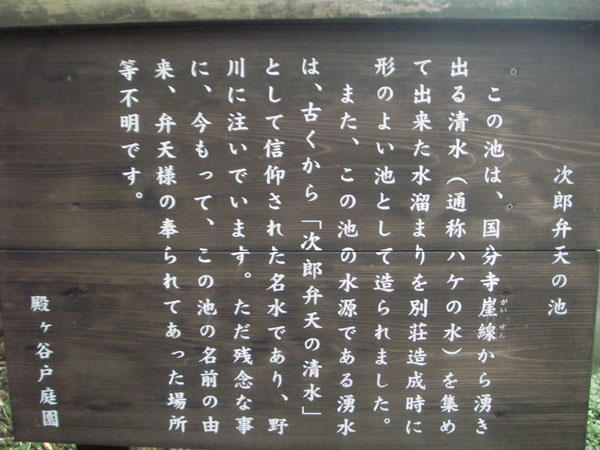 次郎弁天の池
この池は、国分寺崖線から湧き
がいせん
出る清水（通称ハケの水）を集め
て出来た水溜まりを別荘造成時に
形のよい池として造られました。
また、この池の水源である湧水
は、古くから「次郎弁天の清水」
として信仰された名水であり、野
川に注いでいます。ただ残念な事
に、今もって、この池の名前の由
来、弁天様の奉られてあった場所
等不明です。
殿ヶ谷戸庭園